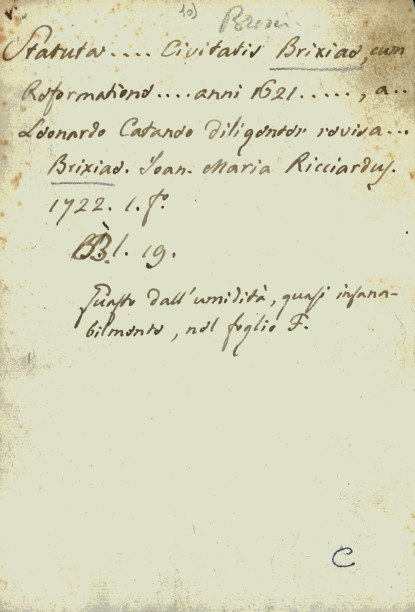 10)
Statuta .... Civitatis Brixiae, cum
Reformatione .... anni 1621 ....., a...
Leonardo Cataneo diligenter revisa...
Brixiae. Joan. Maria Ricciardus.
1722. 1. fo.
l. 19.
Guasto dall'umidità, quasi insana-
bilmente, nel foglio F.
C